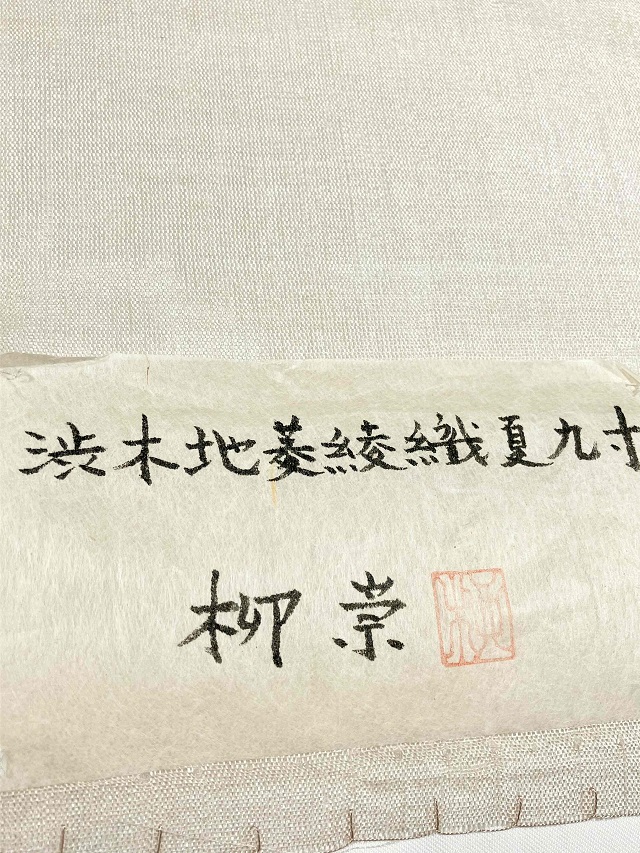 渋木地菱綾織夏九寸
柳崇